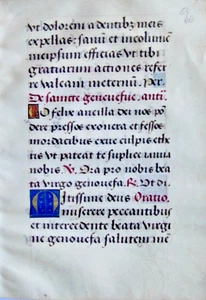 ut dolorem a dentibz meis
expellas: sanũ et incolumẽ
me ipsum efficias ut tibi
gratiarum actiones refer
re valeam meternũ. Per.
De sancte genouefue. antĩ.
O felix ancilla dei nos po
dere pressos exonera et fessos
mordacibus exue culpis eth
tis vt pateat te suplice ianua
nobis ℣. Ora pro nobis bea
ta virgo genouefa. ℟. Vt di.
Mitissime deus Oratio,
miserere peccantibus
et intercedente beata virgi
ne genouefa salutem me